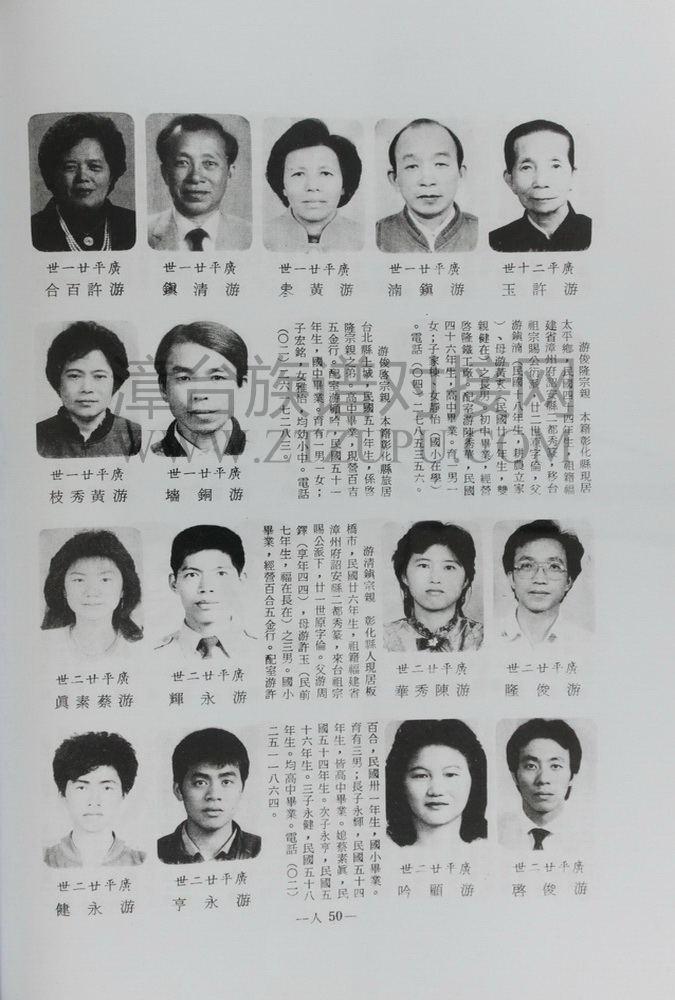 廣平二十世
游許玉
廣平廿一世
游鎭湳
廣平廿一世
游黃柬
廣平廿一世
游清鎭
廣平廿一世
游許百合
游俊隆宗親　本籍彰化縣現居
太平鄉，民國四十四年生，祖籍福
建省漳州府詔安縣二都秀篆，移台
祖宗賜公派下，廿二世原字倫，父
游鎭湳（民國十八年生，耕農立家
）、母游黃柬（民國廿一年生，雙
親健在）之長男，初中畢業，經營
啓隆鐵工廠。配室游陳秀華，民國
四十六年生，高中畢業。育一男一
女；子家棟，女靜怡（國小在學）
。電話（〇四）二七八五三五六。
游俊啓宗親　本籍彰化縣旅居
台北縣土城，民國五十年生，係啓
隆宗親之弟，高中畢業，現營百吉
五金行。配室游顧吟，民國五十一
年生，國中畢業。育有一男一女；
子宏銘，女雅怡，均幼小中。電話
（〇二）二六〇七二八三。
廣平廿一世
游銅墻
廣平廿一世
游黃秀枝
廣平廿二世
游俊隆
廣平廿二世
游陳秀華
游清鎭宗親　彰化縣人現居板
橋市，民國廿六年生，祖籍福建省
漳州府詔安縣二都秀篆，來台祖宗
賜公派下，廿一世原字倫。父游周
鐸（享年四四），母游許玉（民前
七年生，福在長在）之三男。國小
畢業，經營百合五金行。配室游許
廣平廿二世
游永輝
廣平廿二世
游蔡素眞
廣平廿二世
游俊啓
廣平廿二世
游顧吟
百合，民國卅一年生，國小畢業。
育有三男；長子永輝，民國五十四
年生，皆高中畢業。媳蔡素眞，民
國五十四年生。次子永亨，民國五
十六年生。三子永健，民國五十八
年生。均高中畢業。電話（〇二）
二五一一八六四。
廣平廿二世
游永亨
廣平廿二世
游永健
—人 50—
漳台族谱对接网
WWW.ZTZUPU.COM